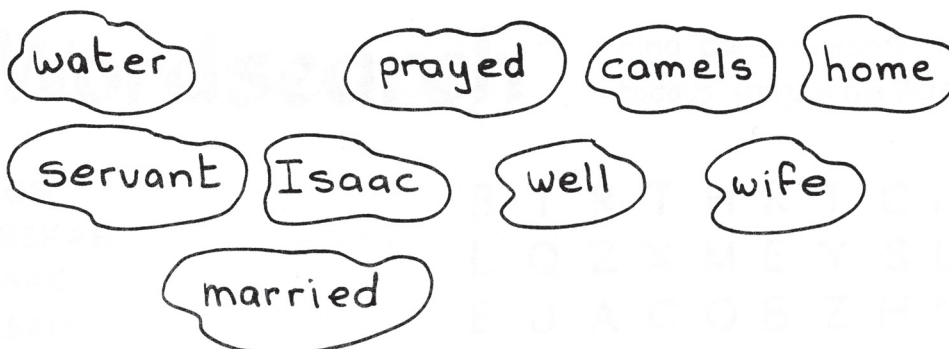 water prayed camels home
servant Isaac well wife
married